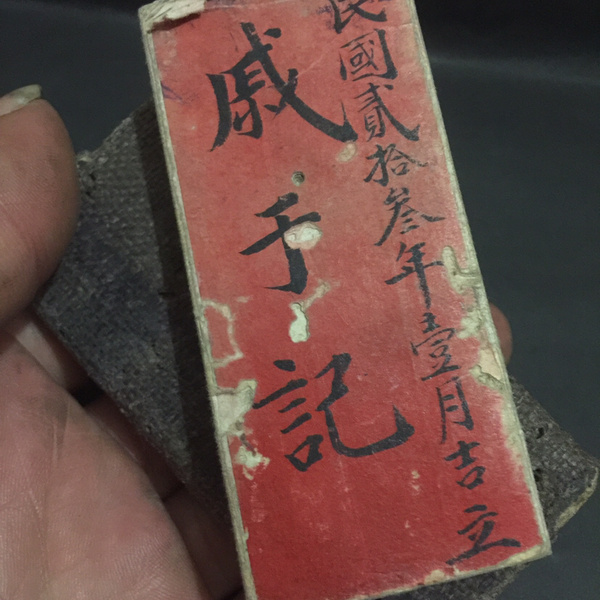 民國貳拾叁年壹月吉立
戚手記